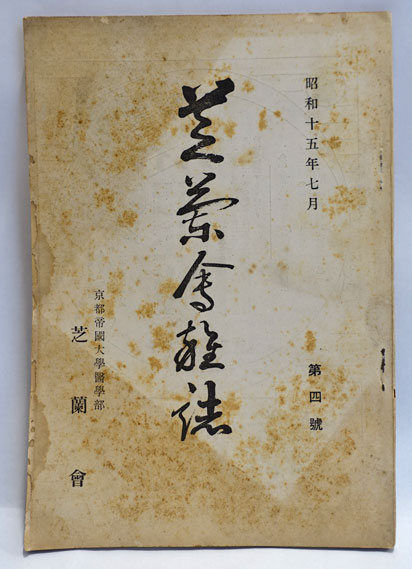 昭和十五年七月
第四號
芝蘭會雜誌
京都帝國大學醫學部
芝蘭會